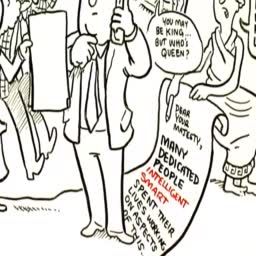 YOU MAY
BE KING...
BUT WHO'S
QUEEN?
DEAR
YOUR
MAJESTY,
MANY
DEDICATED
PEOPLE
INTELLIGENT
SMART
SPENT THEIR
LIVES WORKING
ON ASPECTS
OF THIS